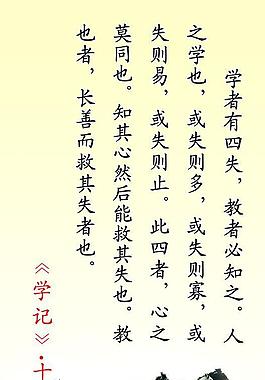 学者有四失，教者必知之。人
之学也，或失则多，或失则寡，或
失则易，或失则止。此四者，心之
莫同也。知其心然后能救其失也。教
也者，长善而救其失者也。
《学记》·十